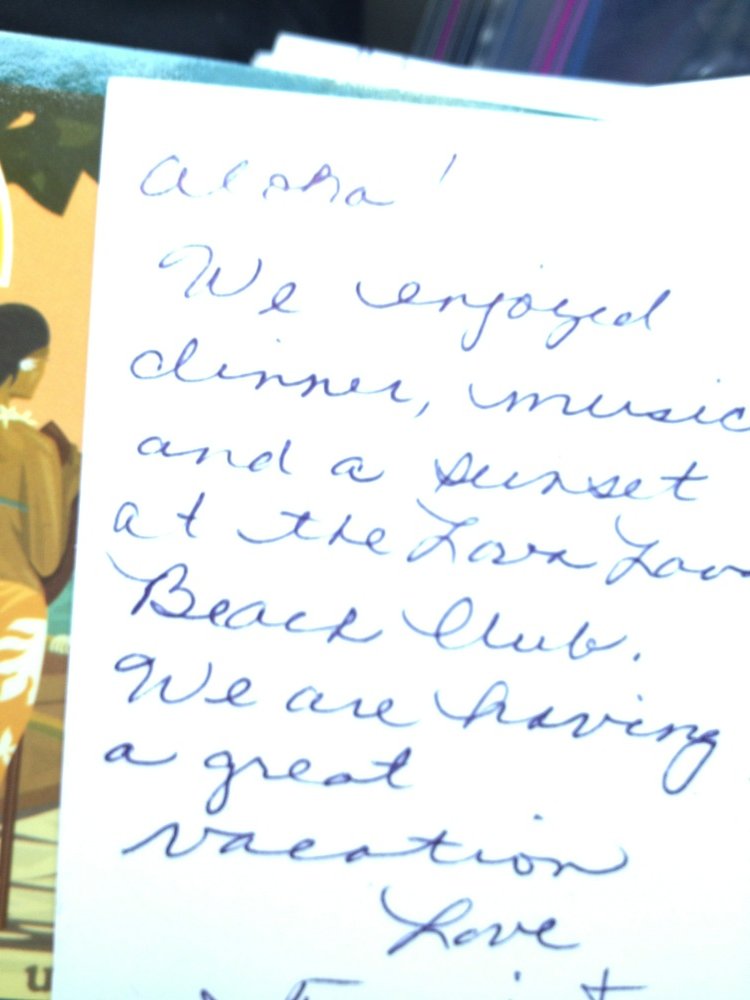 Aloha!
We enjoyed
dinner, music
and a sunset
at the Lava Lav
Beach Club.
We are having
a great
vacation
Love